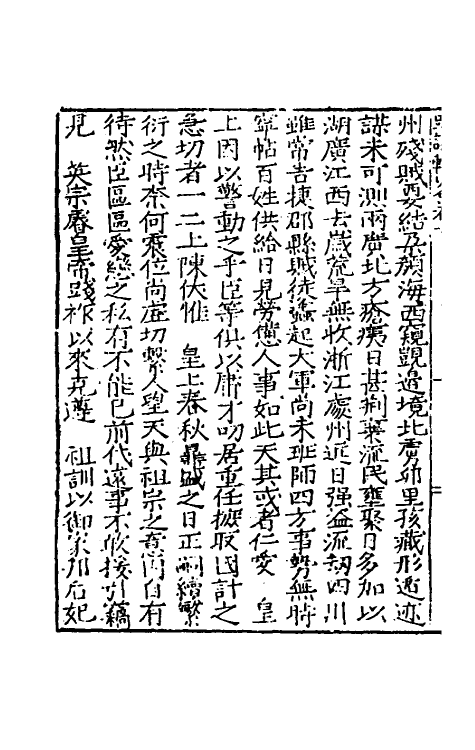 州殘賊要結五嶺海西窺覬邊境北虜卯里孩藏形遁迹
謀未可測兩廣北方瘡痍日甚荆襄流民壅聚日多加以
湖廣江西去歲荒旱無收浙江處州近日强盗流劫四川
雖常告捷郡縣賊徒蝟起大軍尚未班師四方事勢無時
寧帖百姓供給日見勞憊人事如此天其或者仁愛　皇
上因以警動之乎臣等俱以庸才叨居重任撫取國計之
急切者一二上陳伏惟　皇上春秋鼎盛之日正嗣續繁
衍之時柰何乘位尚虛切繫人望天與祖宗之意尚自有
待然臣區區愛戀之私有不能已前代遠事不敢接引籍
見　英宗睿皇帝踐祚以來克遵　祖訓以御家邦后妃